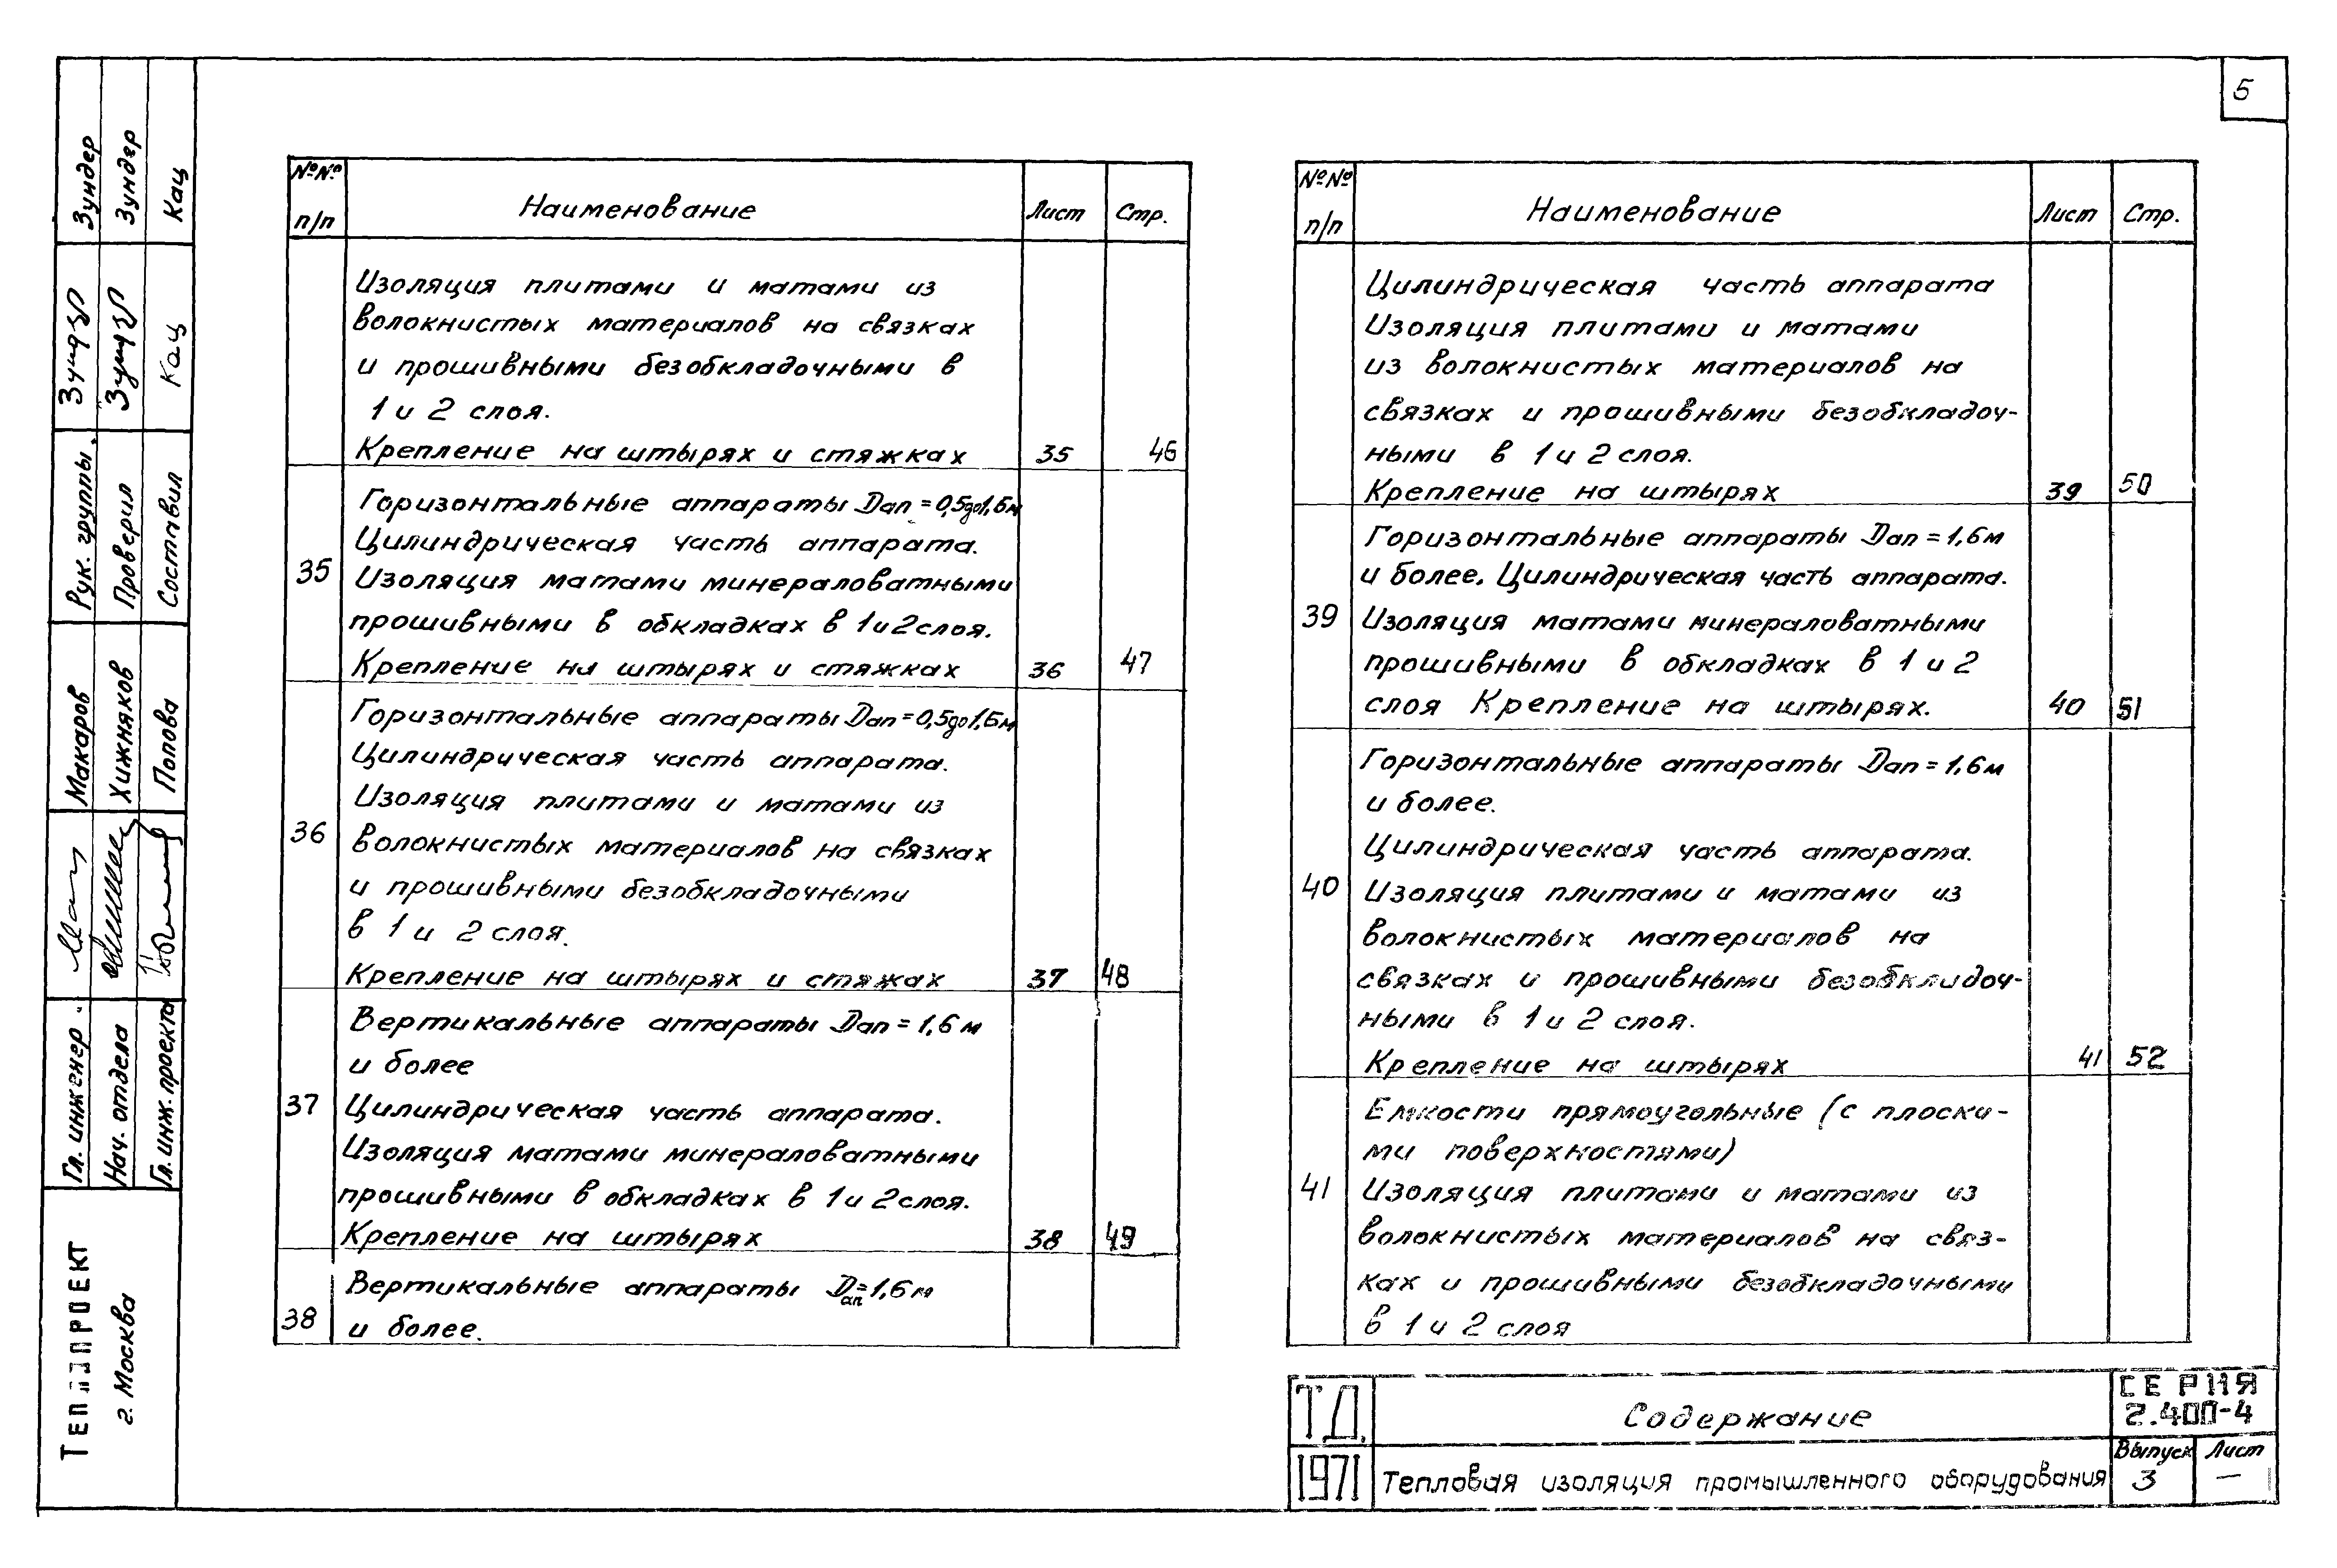 5
№№
п/п
Наименование
Лист
Стр.
Изоляция плитами и матами из
волокнистых материалов на связках
и прошивными безобкладочными в
1 и 2 слоя.
Крепление на штырях и стяжках 35 46
Горизонтальные аппараты Dап = 0,5до1,6м
Цилиндрическая часть аппарата.
35 Изоляция матами минераловатными
прошивными в обкладках в 1 и 2 слоя.
Крепление на штырях и стяжках 36 47
Горизонтальные аппараты Dап = 0,5до1,6м
Цилиндрическая часть аппарата.
Изоляция плитами и матами из
36 волокнистых материалов на связках
и прошивными безобкладочными
в 1 и 2 слоя.
Крепление на штырях и стяжах 37 48
Вертикальные аппараты Dап = 1,6 м
и более
37 Цилиндрическая часть аппарата.
Изоляция матами минераловатными
прошивными в обкладках в 1 и 2 слоя.
Крепление на штырях 38 49
Вертикальные аппараты Dап = 1,6 м
38 и более.
№№
п/п
Наименование
Лист
Стр.
Цилиндрическая часть аппарата
Изоляция плитами и матами
из волокнистых материалов на
связках и прошивными безобкладоч-
ными в 1 и 2 слоя.
Крепление на штырях 39 50
Горизонтальные аппараты Dап = 1,6м
и более. Цилиндрическая часть аппарата.
39 Изоляция матами минераловатными
прошивными в обкладках в 1 и 2
слоя Крепление на штырях. 40 51
Горизонтальные аппараты Dап = 1,6м
и более.
Цилиндрическая часть аппарата.
40 Изоляция плитами и матами из
волокнистых материалов на
связках и прошивными безобкладоч-
ными в 1 и 2 слоя.
Крепление на штырях 41 52
Емкости прямоугольные (с плоски-
ми поверхностями)
41 Изоляция плитами и матами из
волокнистых материалов на связ-
ках и прошивными безобкладочными
в 1 и 2 слоя
ТД
1971
Содержание
Тепловая изоляция промышленного оборудования
СЕРИЯ
2.400-4
Выпуск
3
Лист
—
ТЕПЛОПРОЕКТ
г. Москва
Гл. инженер Макаров
Нач. отдела Хижняков
Гл. инж. проекта Попова
Рук. группы Зунд Зундер
Проверил Зунд Зундер
Составил Кац Кац